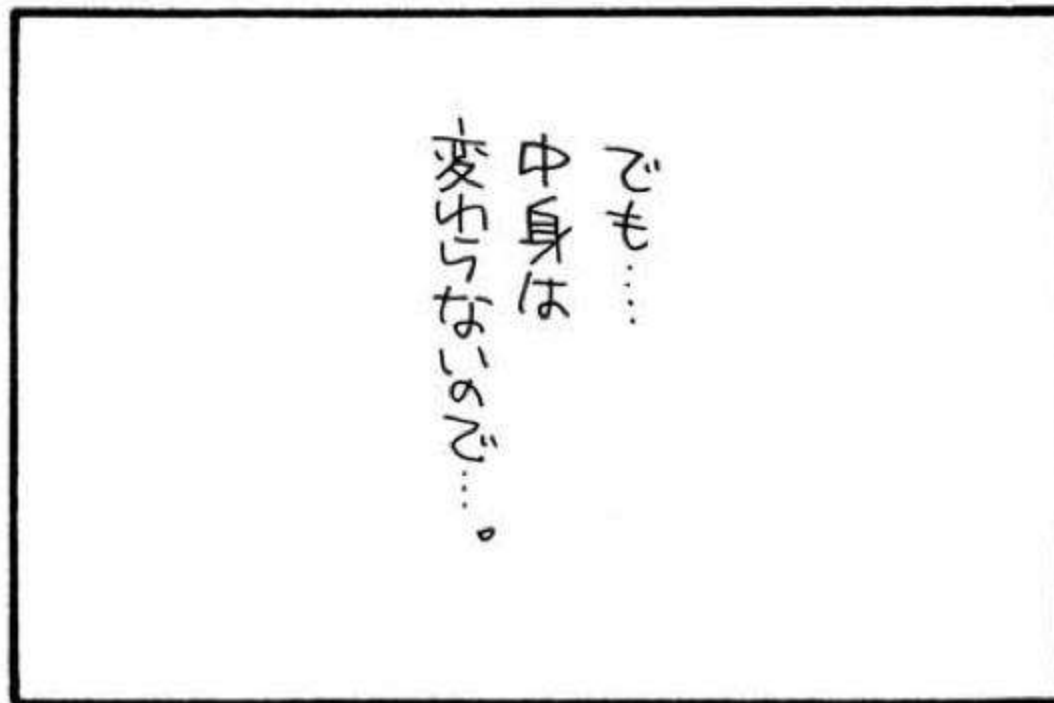 でも‥‥
中身は
変わらないので…。